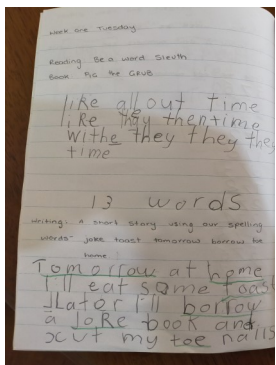 Work are Tuesday
Reading Be a word Sleuth
Book PIG the GRUB
like all out time
like they then time
withe they they they
time
13 words
Writing: A short story using our spelling
words - joke toast tomorrow borrow be
home
Tomorrow at home
I'll eat some toast
Lator I'll borrow
a joke book and
cut my toe nails